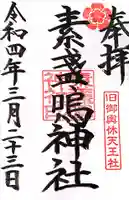 奉拝
旧御輿休天王社
素盞嗚神社
令和四年三月二十三日